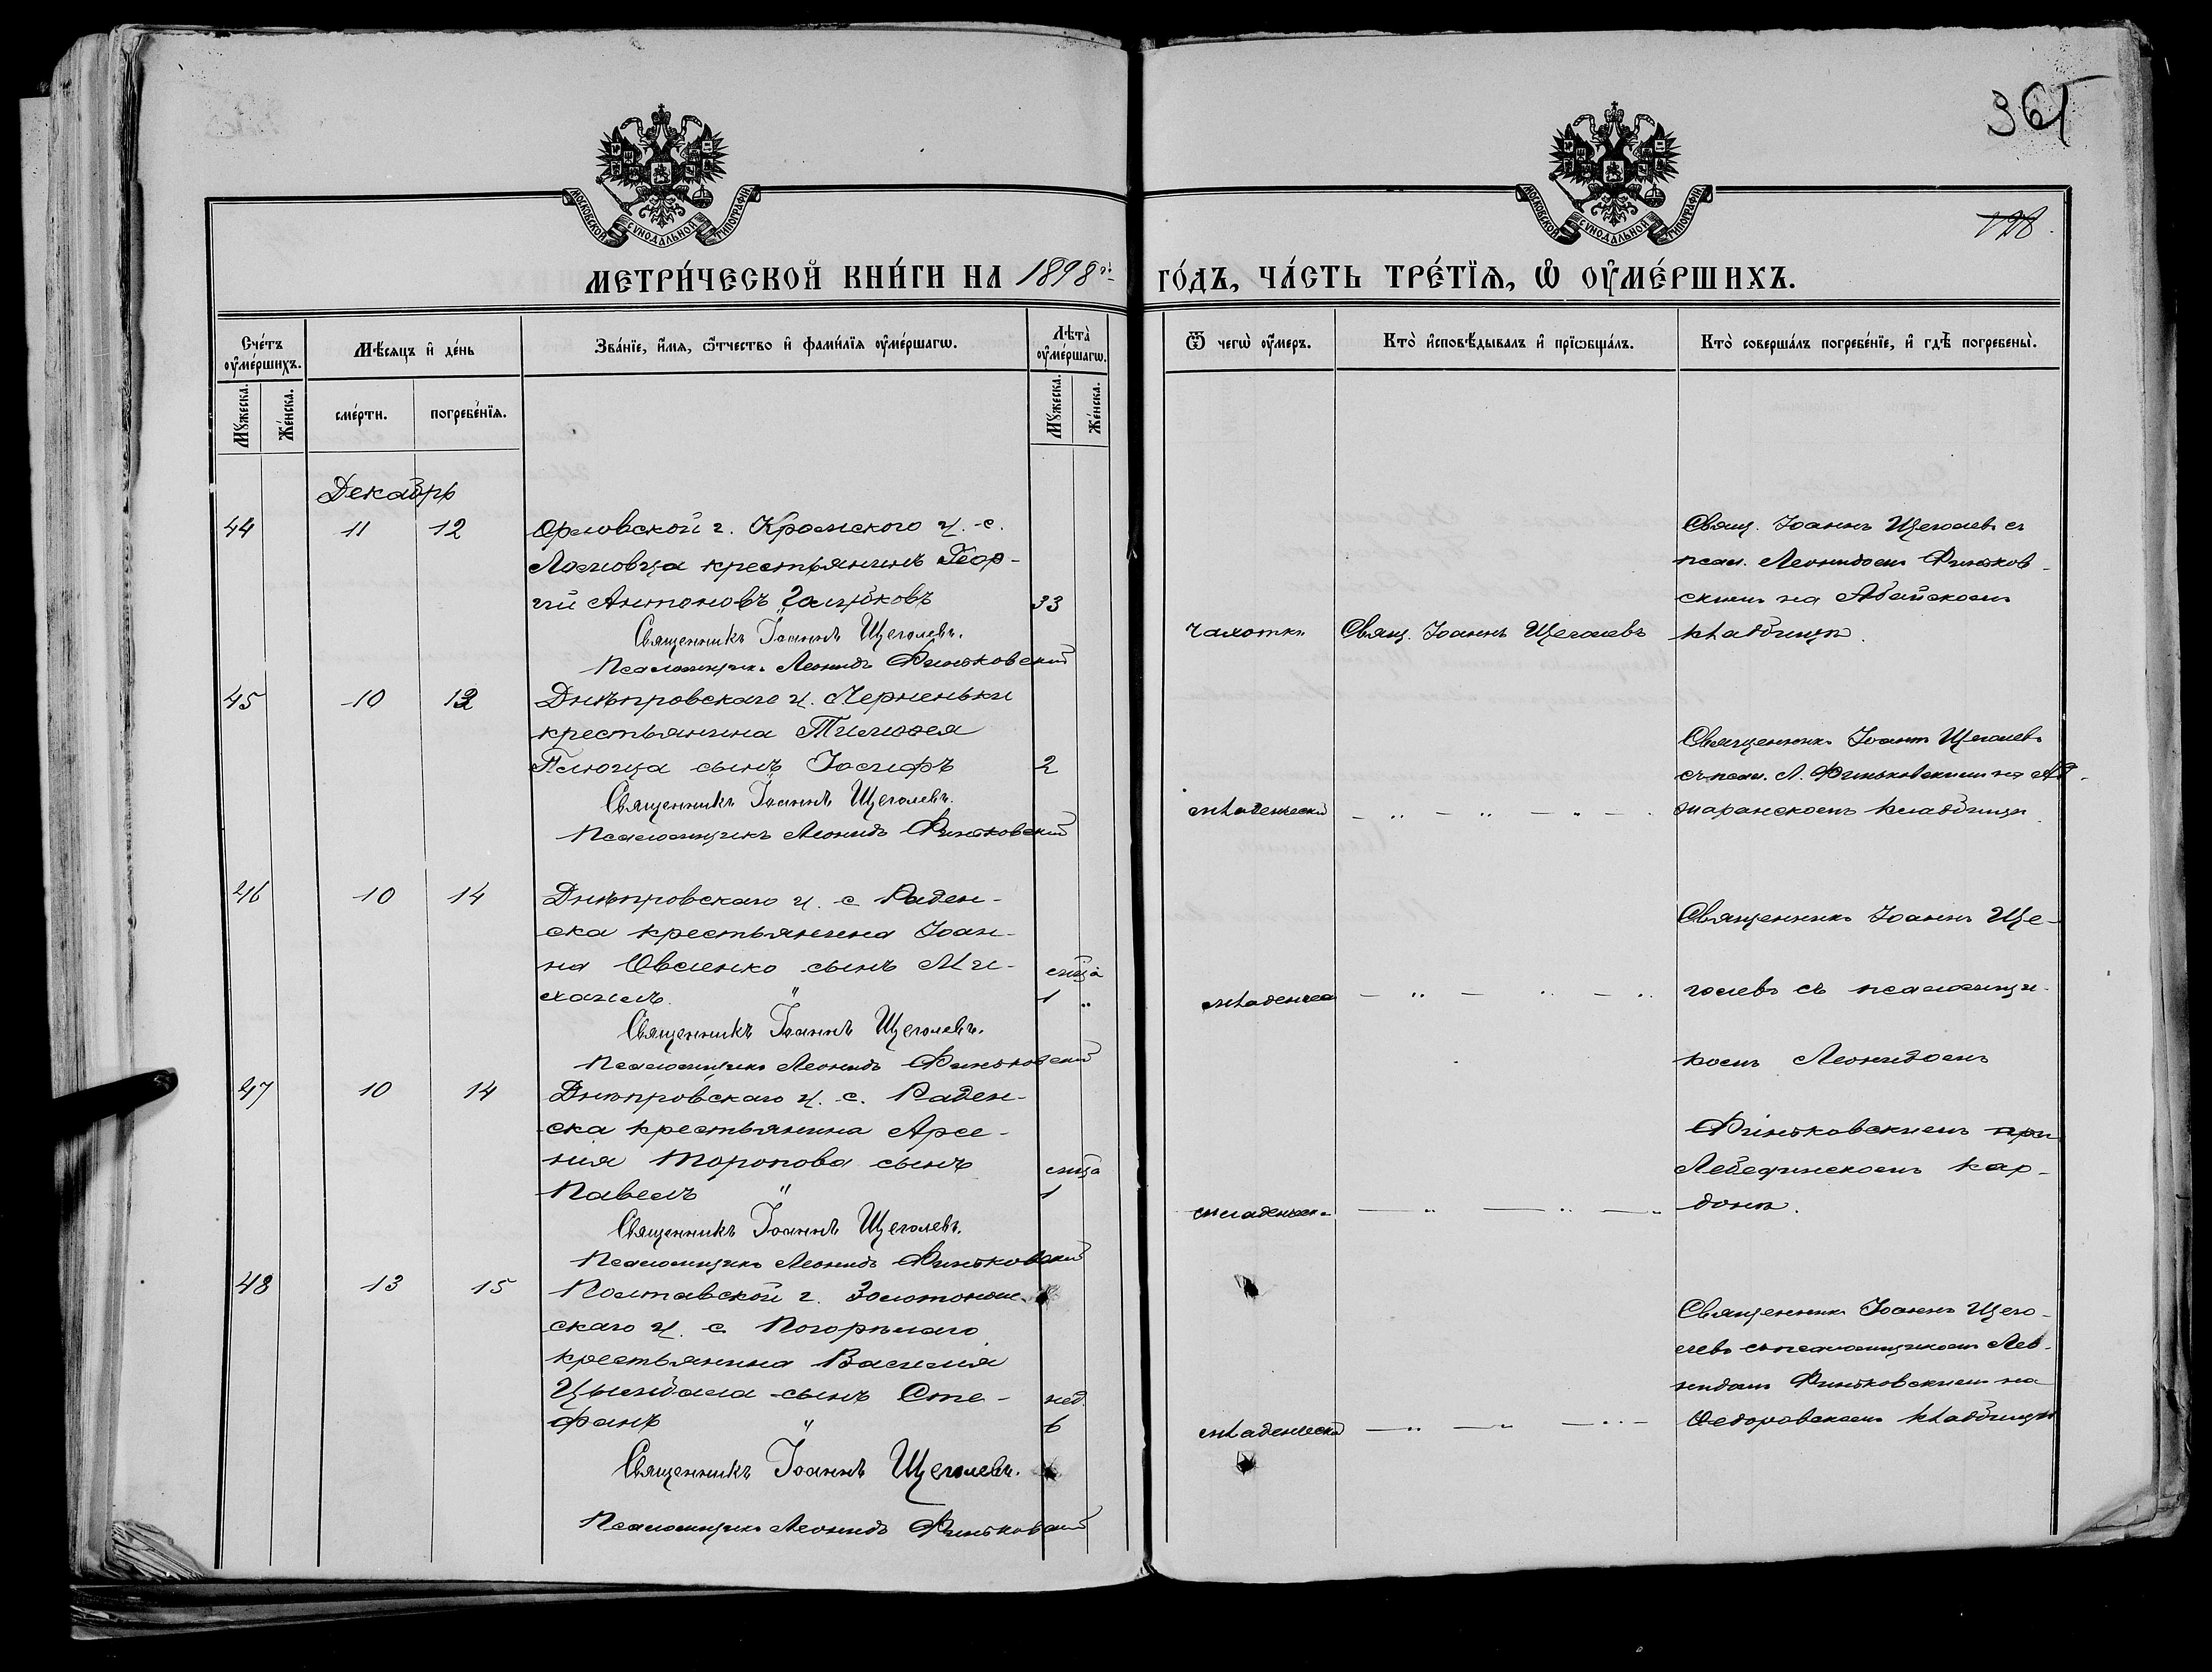 361
198.
МОСКОВСКОЙ СѴНОДАЛЬНОЙ ТИПОГРАФІИ
МОСКОВСКОЙ СѴНОДАЛЬНОЙ ТИПОГРАФІИ
МЕТРИ́ЧЕСКОЙ КНИ́ГИ НА 1898й ГО́ДЪ, ЧА́СТЬ ТРЕ́ТЇѦ, Ѡ҆ ОУ҆МЕ́РШИХЪ.
Сче́тъ оу҆ме́ршихъ.
Мѣ́сяцъ и҆ де́нь
Зва́нїе, и҆́мѧ, ѻ҆́тчество и҆ фами́лїѧ оу҆ме́ршагѡ.
Лѣта̀ оу҆ме́ршагѡ.
Ѿ чегѡ̀ оу҆́меръ.
Кто̀ и҆сповѣ́дывалъ и҆ прїѡбща́лъ.
Кто̀ соверша́лъ погребе́нїе, и҆ гдѣ̀ погребены̀.
Мꙋ́жеска.
Же́нска.
сме́рти.
погребе́нїѧ.
Мꙋ́жеска.
Же́нска.
Декабрь
44 11 12 Орловской г. Кромского у. с.
Ломовца крестьянинъ Геор-
гій Антоновъ Голубковъ 33
Священникъ Іоаннъ Щеголевъ.
Псаломщикъ Леонидъ Финьковскій
чахотки Свящ. Іоаннъ Щеголевъ
Свящ. Іоаннъ Щеголевъ съ
псал. Леонидомъ Финьков-
скимъ на Абайскомъ
кладбищѣ.
45 10 12 Днѣпровскаго у. с. Черненьки
крестьянина Тимофея
сынъ Іосифъ 2
Священникъ Іоаннъ Щеголевъ.
Псаломщикъ Леонидъ Финьковскій
младенческ. — „ — „ — „ —
Священникъ Іоаннъ Щеголевъ
съ псал. Л. Финьковскимъ на Ад-
жаранскомъ кладбищѣ
46 10 14 Днѣпровскаго у. с. Раден-
ска крестьянина Іоан-
на Овсіенко сынъ Ми- мѣсяца
хаилъ „ 1 „
Священникъ Іоаннъ Щеголевъ.
Псаломщикъ Леонидъ Финьковскій
младенческ — „ — „ — „
Священникъ Іоаннъ Ще-
голевъ съ псаломщи-
комъ Леонидомъ
47 10 14 Днѣпровскаго у. с. Раден-
ска крестьянина Арсе-
нія Торопова сынъ мѣсяца
Павелъ „ 1
Священникъ Іоаннъ Щеголевъ.
Псаломщикъ Леонидъ Финьковскій
младенческ. — „ — „ — „
Финьковскимъ при
Лебединскомъ кар-
донѣ.
48 13 15 Полтавской г. Золотонош-
скаго у. с. Погорѣлаго
крестьянина Василія
Цымбала сынъ Сте- нед.
фанъ „ 6
Священникъ Іоаннъ Щеголевъ.
Псаломщикъ Леонидъ Финьковскій
младенческ — „ — „ — „ —
Священникъ Іоаннъ Щего-
левъ съ псаломщикомъ Лео-
нидомъ Финьковскимъ на
Федоровскомъ кладбищѣ